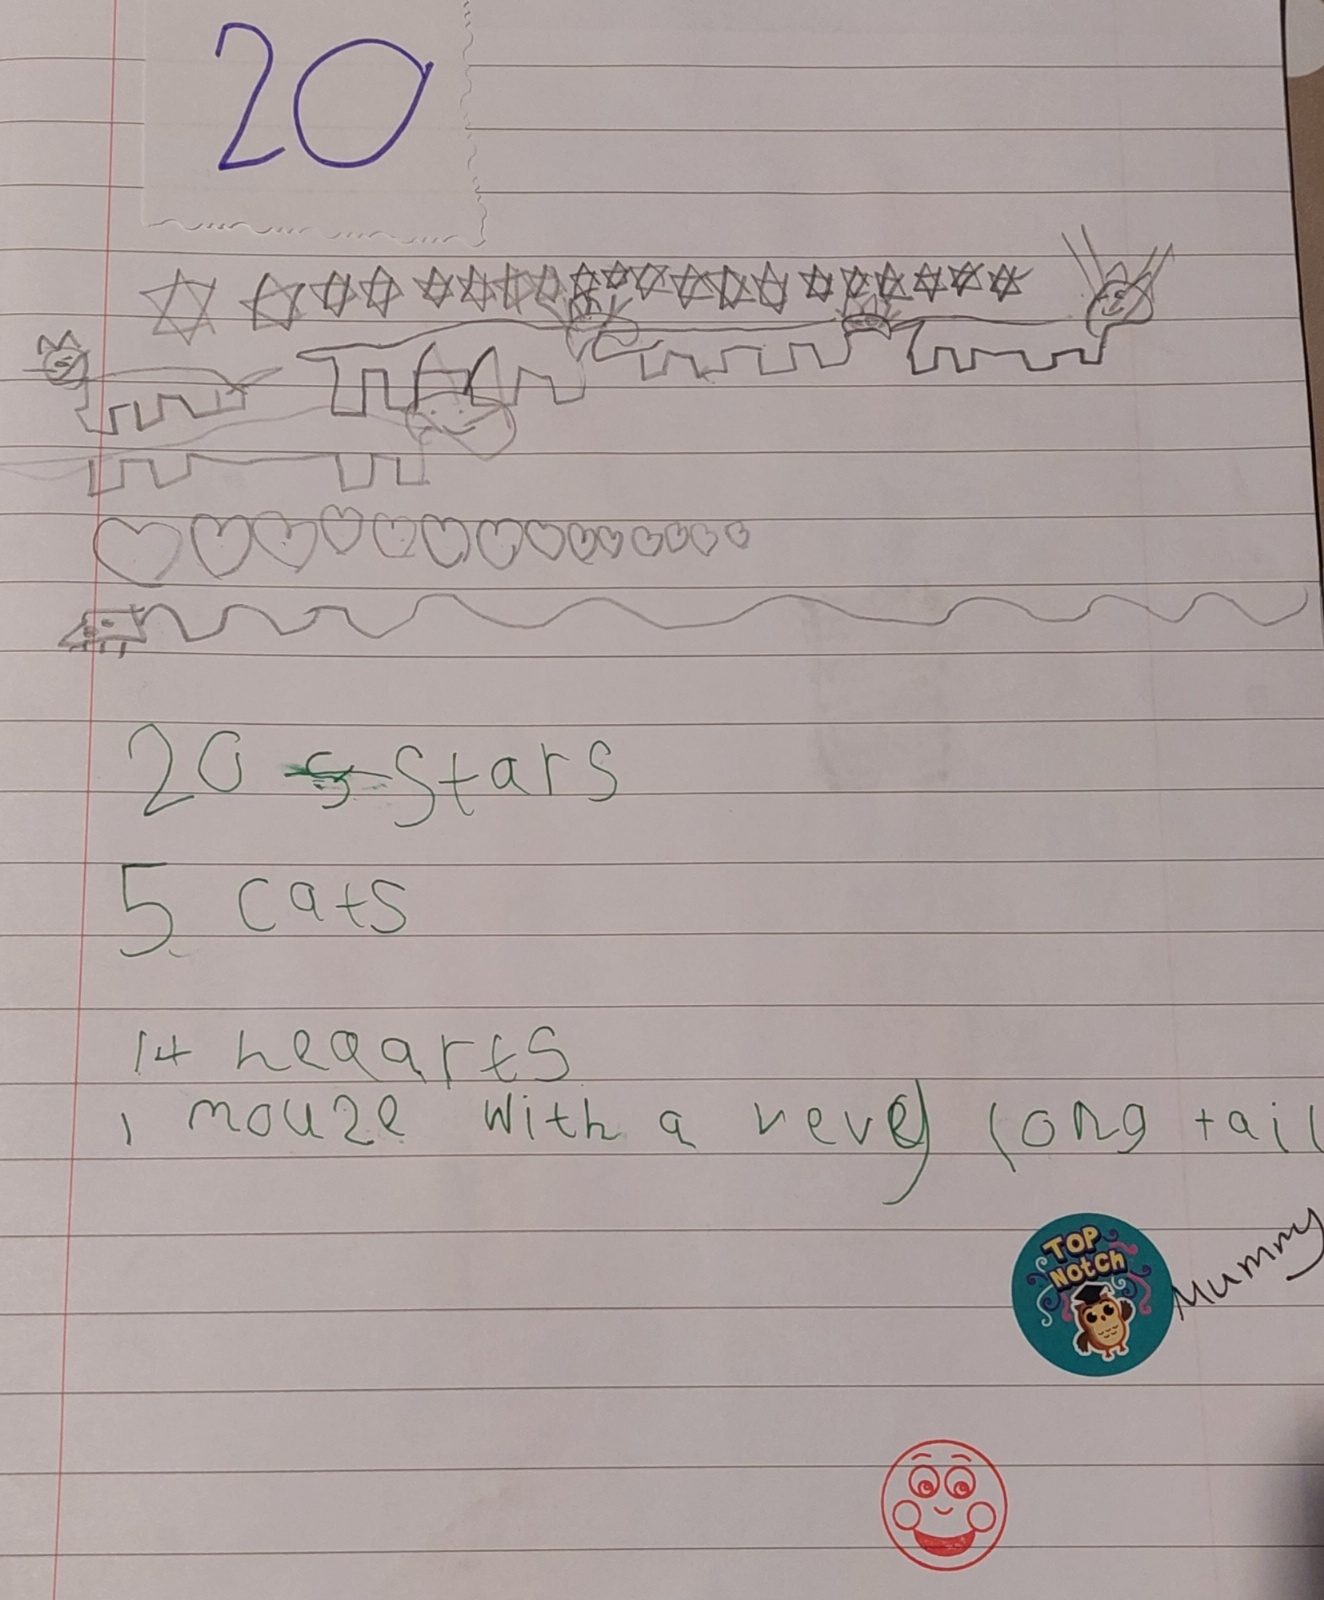 20
20 stars
5 cats
14 heqarts
1 mouze with a vevey long tail
TOP
NOtCh
Mummy